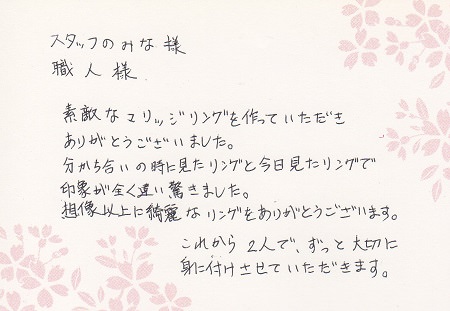 スタッフのみな様
職人様
素敵なマリッジリングを作っていただき
ありがとうございました。
分かち合いの時に見たリングと今日見たリングで
印象が全く違い驚きました。
想像以上に綺麗なリングをありがとうございます。
これから2人で、ずっと大切に
身に付けさせていただきます。